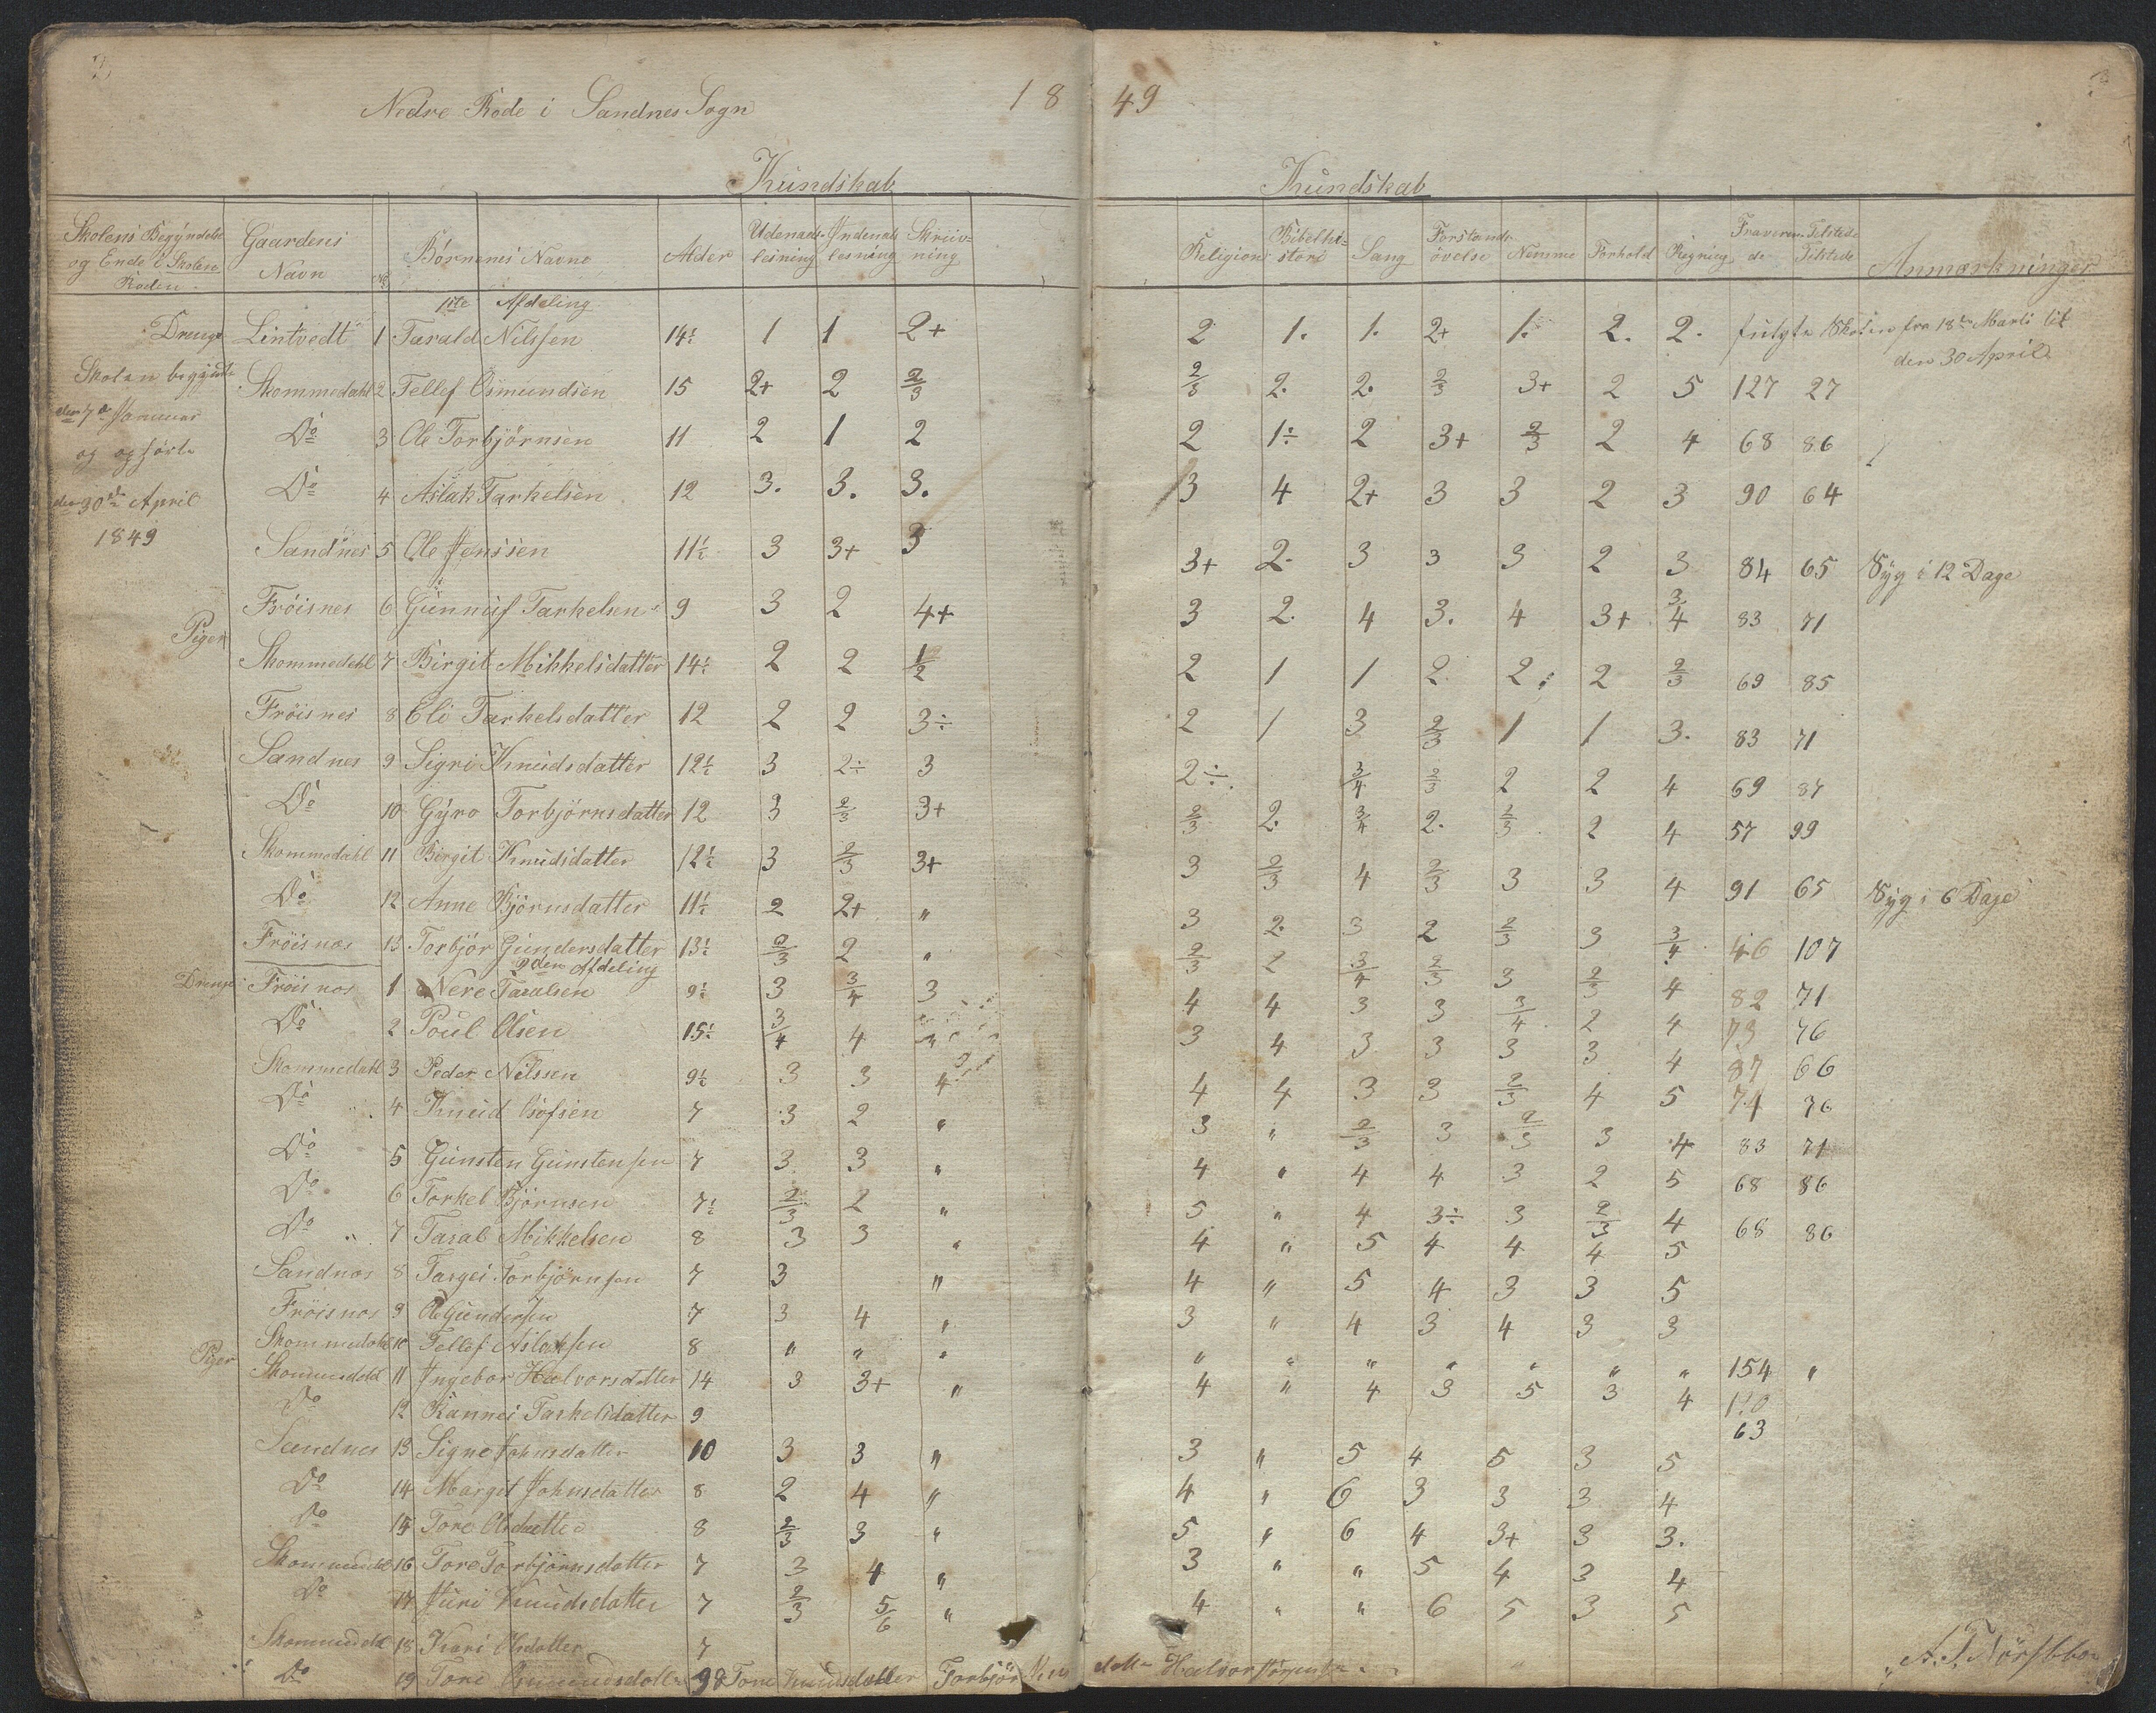 3
Nedre Rode i Sandnes Sogn 1849
Kundskab Kundskab
Skolens Begyndelse og Ende i Skolen Roden. Gaardens Navn No Børnenes Navne Alder Udenads-lesning Indenads lesning Skriiv-ning Religion Bibelhi-storie Sang Forstands øvelse Nemme Forhold Regning Fraveren-de Tilstede Anmærkninger
1ste Afdeling
Drenge Lintvedt 1 Tarald Nilssen 14½ 1 1 2+ 2 1. 1. 2+ 1. 2. 2. fulgte Skolen fra 18de Marti til
den 30 April
Skolen begyndte Skommedahl 2 Tellef Osmundsen 15 2+ 2 2/3 2/3 2. 2. 2/3 3+ 2 5 127 27
den 7de Januar
Do 3 Ole Torbjørnsen 11 2 1 2 2 1÷ 2 3+ 2/3 2 4 68 86
og opførte
Do 4 Aslak Tarkelsen 12 3. 3. 3. 3 4 2+ 3 3 2 3 90 64
den 30te April
1849
Sandnes 5 Ole Jenssen 11½ 3 3+ 3 3+ 2. 3 3 3 2 3 84 65 Syg i 12 Dage
Frøisnes 6 Gunnuf Tarkelsen 9 3 2 4+ 3 2. 4 3. 4 3+ 3/4 83 71
Piger
Skommedahl 7 Birgit Mikkelsdatter 14½ 2 2 1/2 2 1 1 2 2 2 2/3 69 85
Frøisnes 8 Eli Tarkelsdatter 12 2 2 3÷ 2 1 3 2/3 1 1 3. 83 71
Sandnes 9 Sigri Knudsdatter 12½ 3 2÷ 3 2÷ 3/4 2/3 2 2 4 69 87
Do 10 Gyro Torbjørnsdatter 12 3 2/3 3+ 2/3 2. 3/4 2. 2/3 2 4 57 99
Skommedahl 11 Birgit Knudsdatter 12½ 3 2/3 3+ 3 2/3 4 2/3 3 3 4 91 65 Syg i 6 Dage
Do 12 Anne Bjørnsdatter 11½ 2 2+ " 3 2. 3 2 2/3 3 3/4 46 107
Frøisnes 13 Torbjør Gundersdatter 13½ 2/3 2 " 2/3 2 3/4 2/3 3 2/3 4 82 71
2den Afdeling
Drenge Frøisnes 1 Nere Taralsen 9½ 3 3/4 3 4 4 3 3 3/4 2 4 73 76
Do 2 Poul Olsen 15½ 3/4 4 " 3 4 3 3 3 3 4 87 66
Skommedahl 3 Peder Nilssen 9½ 3 3 4 4 4 3 3 2/3 4 5 74 76
Do 4 Knud 7 3 2 " 3 " 2/3 3 2/3 3 4 83 71
Do 5 Gunsten Gunstensen 7 3 3 " 4 " 4 4 3 2 5 68 86
Do 6 Torkel Bjørnsen 7½ 2/3 2 " 5 " 4 3÷ 3 2/3 4 68 86
Do 7 Taral Mikkelsen 8 3 3 " 4 " 5 4 4 4 5
Sandnes 8 Targei Torbjørnsen 7 3 " 4 " 5 4 3 3 5
Frøisnes 9 Ole Gundersen 7 3 4 " 3 " 4 3 4 3 3
Skommedahl 10 Tellef Aslaksen 8 " " " " " " " " " " 154 "
Piger
Skommedahl 11 Ingebor Halvorsdatter 14 3 3+ " 4 " 4 3 5 3 4
Do 12 Rannei Tarkelsdatter 9 63
Sandnes 13 Signe Johnsdatter 10 3 3 " 3 " 5 4 5 3 5
Do 14 Margit Johnsdatter 8 2 4 " 4 " 6 3 3 3 4
Do 15 Tore Olsdatter 8 2/3 3 " 5 " 6 4 3+ 3 3.
Skommedahl 16 Tore Torbjørnsdatter 7 3 4 " 3 " " 5 4 3 4
Do 17 Juri Knudsdatter 7 2/3 5/6 " 4 " " 6 5 3 5
Skommedahl 18 Kari Olsdatter 7
Do 19 Tone Osmundsdatter 9 Tone Knudsdatter Torbjør